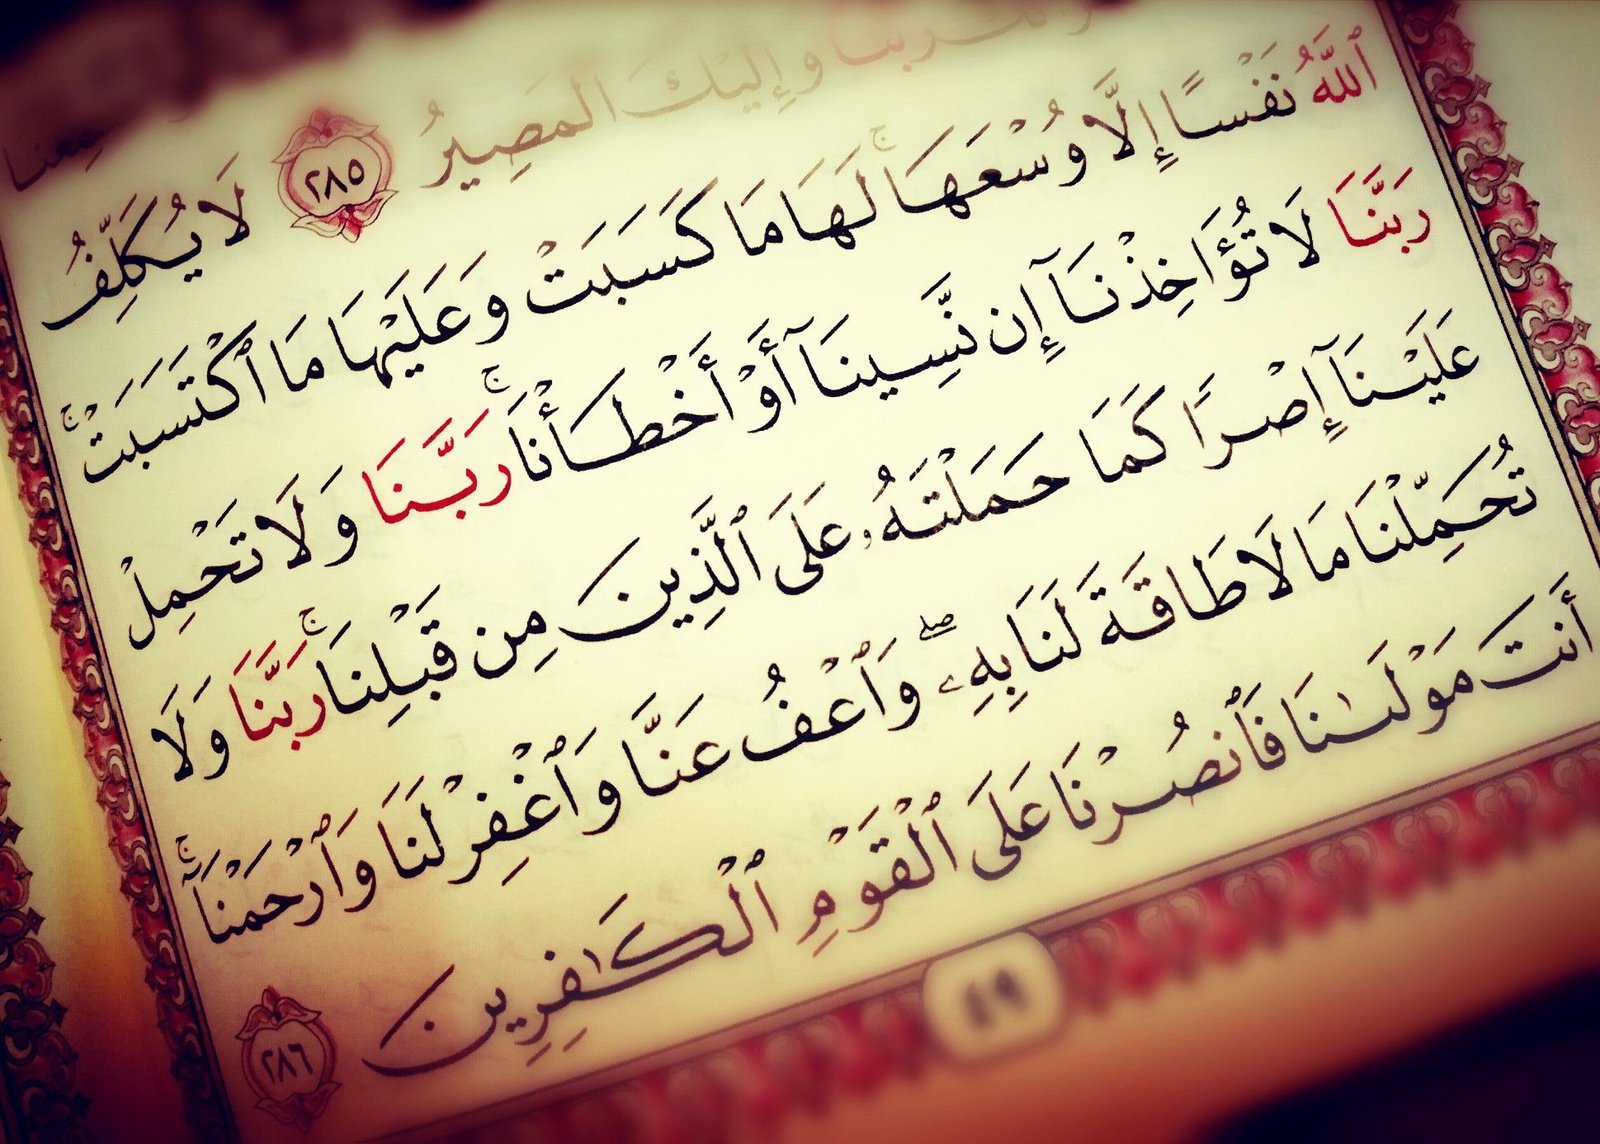 رَبَّنَا وَإِلَيْكَ الْمَصِيرُ ٢٨٥ لَا يُكَلِّفُ
ٱللَّهُ نَفْسًا إِلَّا وُسْعَهَا ۚ لَهَا مَا كَسَبَتْ وَعَلَيْهَا مَا ٱكْتَسَبَتْ ۗ
رَبَّنَا لَا تُؤَاخِذْنَآ إِن نَّسِينَآ أَوْ أَخْطَأْنَا ۚ رَبَّنَا وَلَا تَحْمِلْ
عَلَيْنَآ إِصْرًا كَمَا حَمَلْتَهُۥ عَلَى ٱلَّذِينَ مِن قَبْلِنَا ۚ رَبَّنَا وَلَا
تُحَمِّلْنَا مَا لَا طَاقَةَ لَنَا بِهِۦ ۖ وَٱعْفُ عَنَّا وَٱغْفِرْ لَنَا وَٱرْحَمْنَآ ۚ
أَنتَ مَوْلَىٰنَا فَٱنصُرْنَا عَلَى ٱلْقَوْمِ ٱلْكَٰفِرِينَ ٢٨٦
٤٩